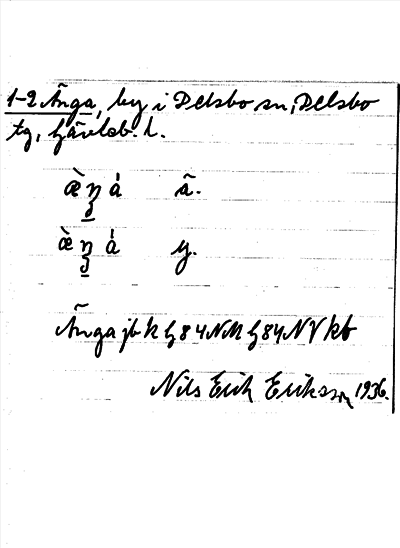 1-2 Änga, by i Delsbo sn, Delsbo
tg, Gävleb. l.
æ̀ŋá ä.
æ̀ŋá y.
Änga jb k h84NM h84NV kb
Nils Erik Eriksson 1936.